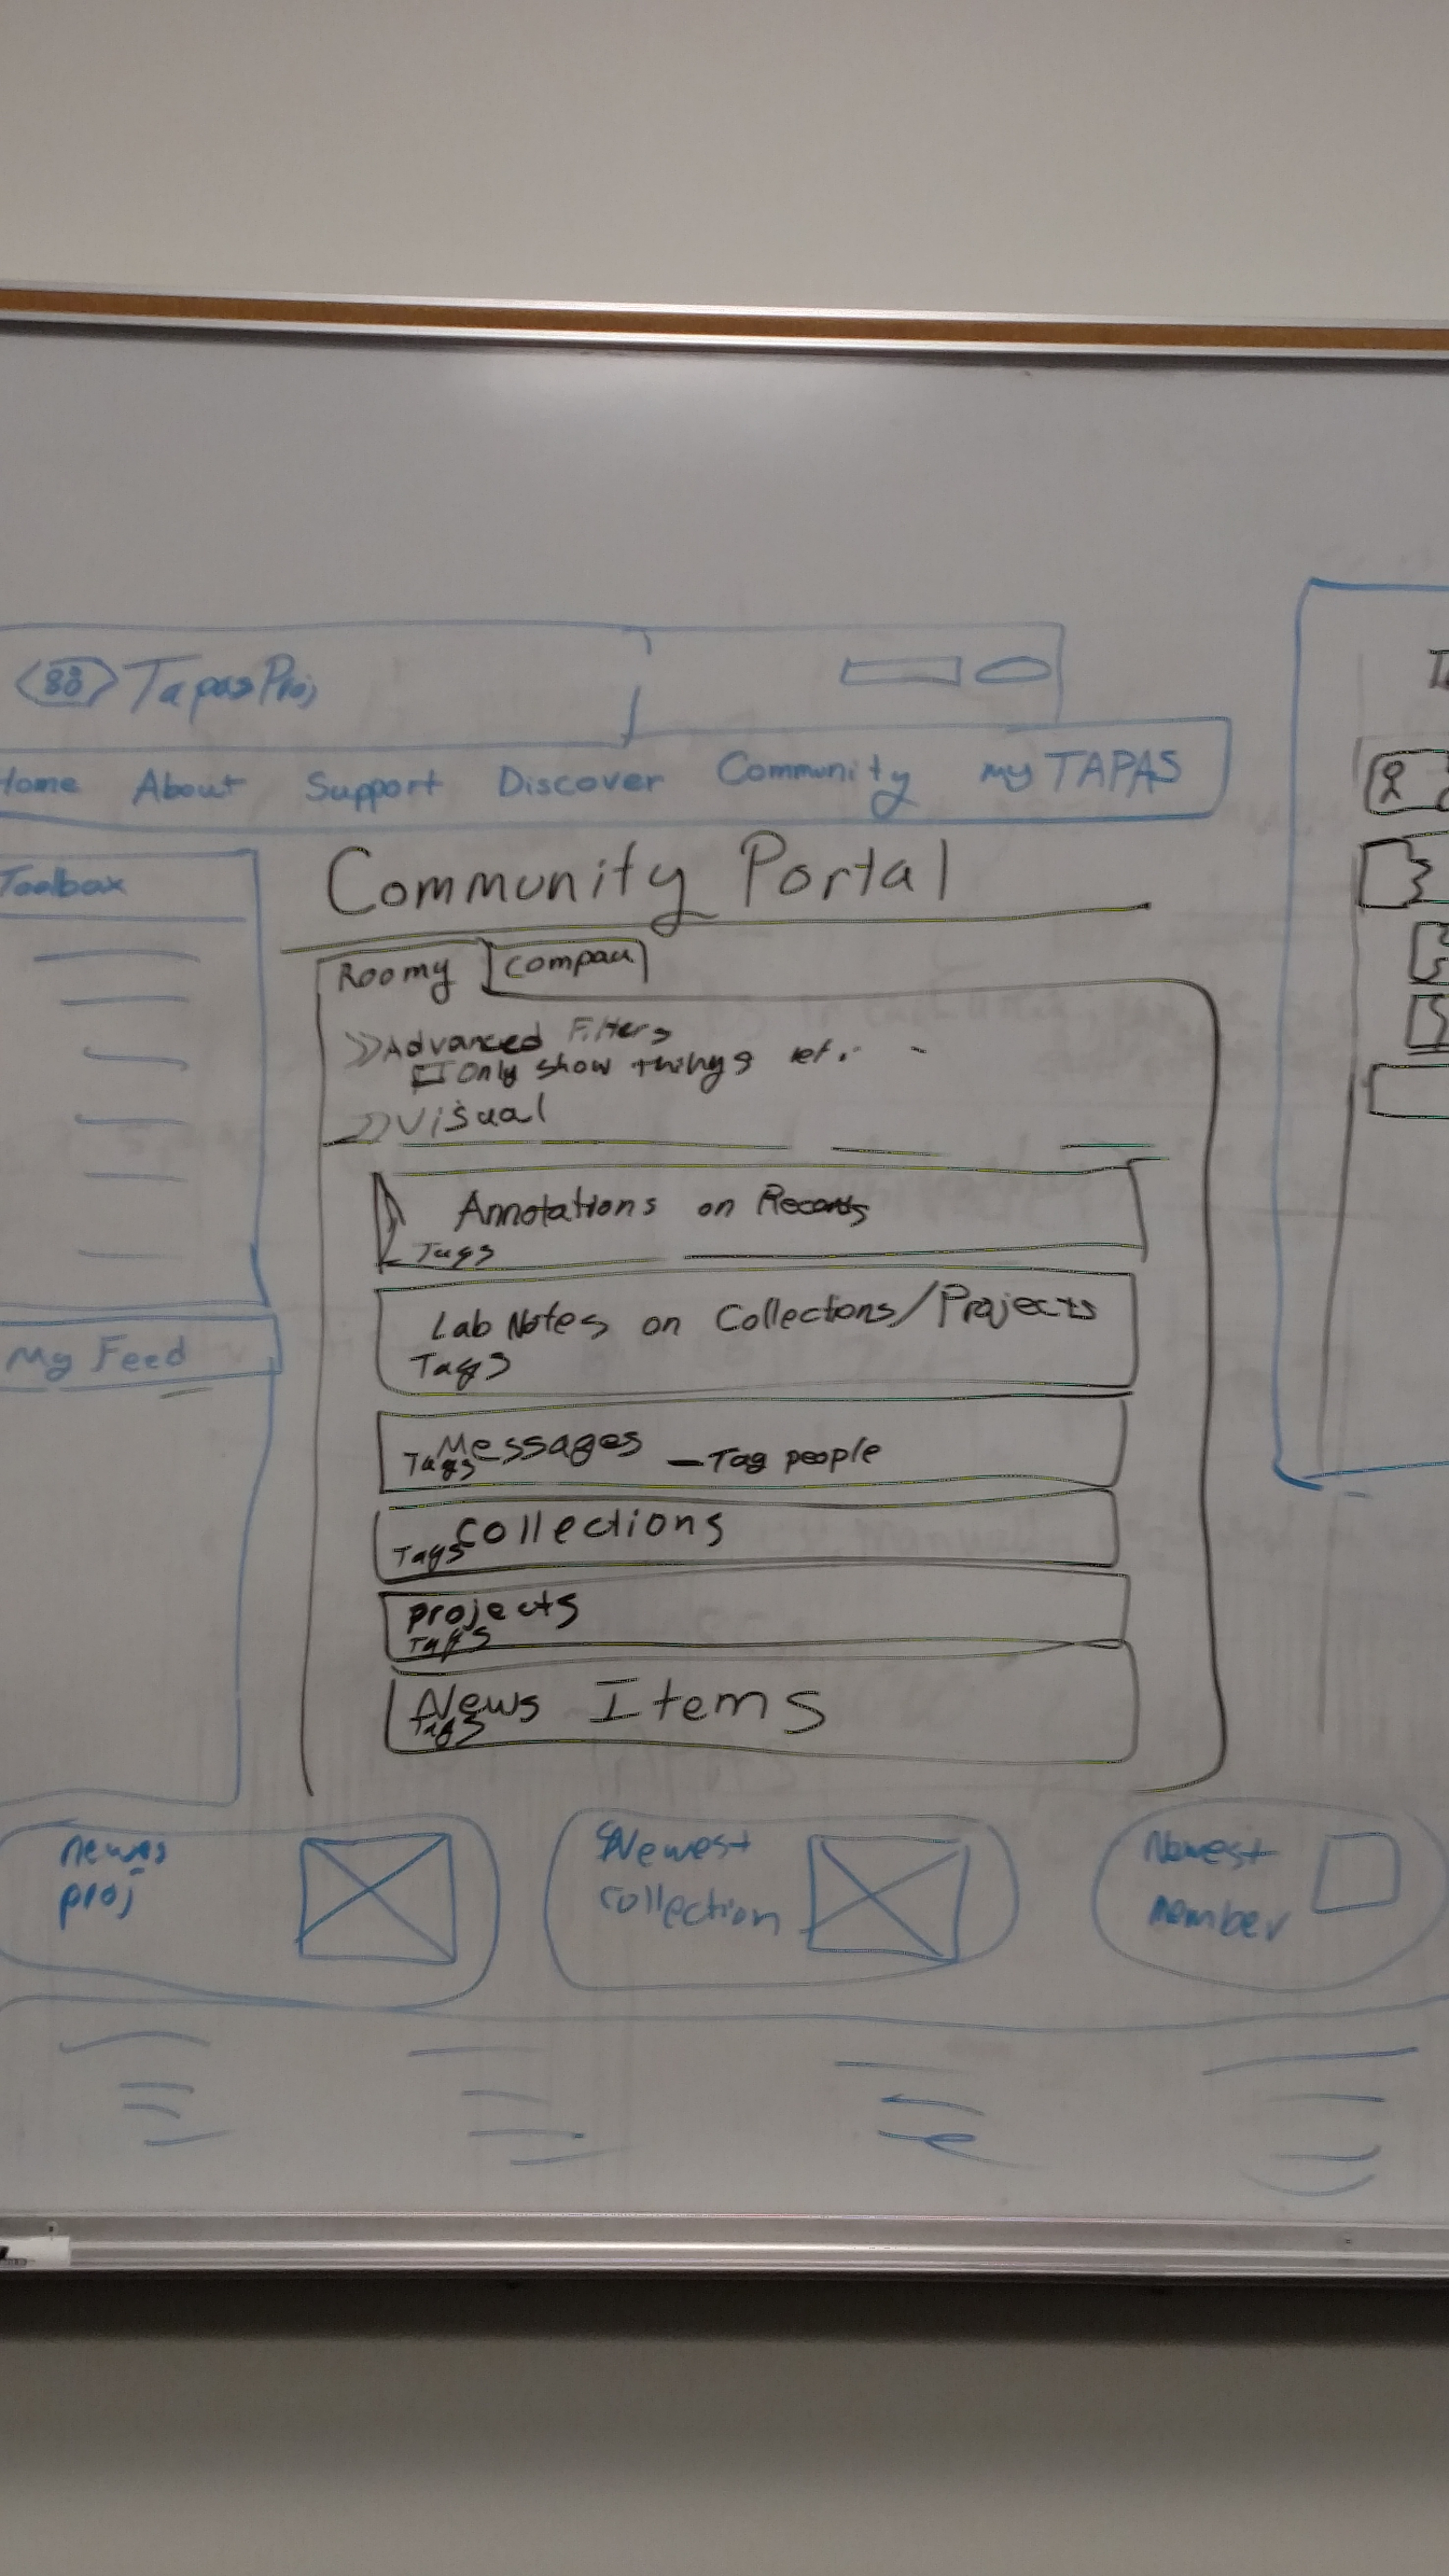 TapasProj
Home About Support Discover Community my TAPAS
Toolbox
Community Portal
Roomy
Advanced Filters
Only show things
Visual
Annotations on Records
Tags
Lab Notes on Collections/Projects
Tags
My Feed
Messages - Tag people
Tags
collections
Tags
projects
Tags
News Items
Tags
proj
Newest
collection
Newest
member